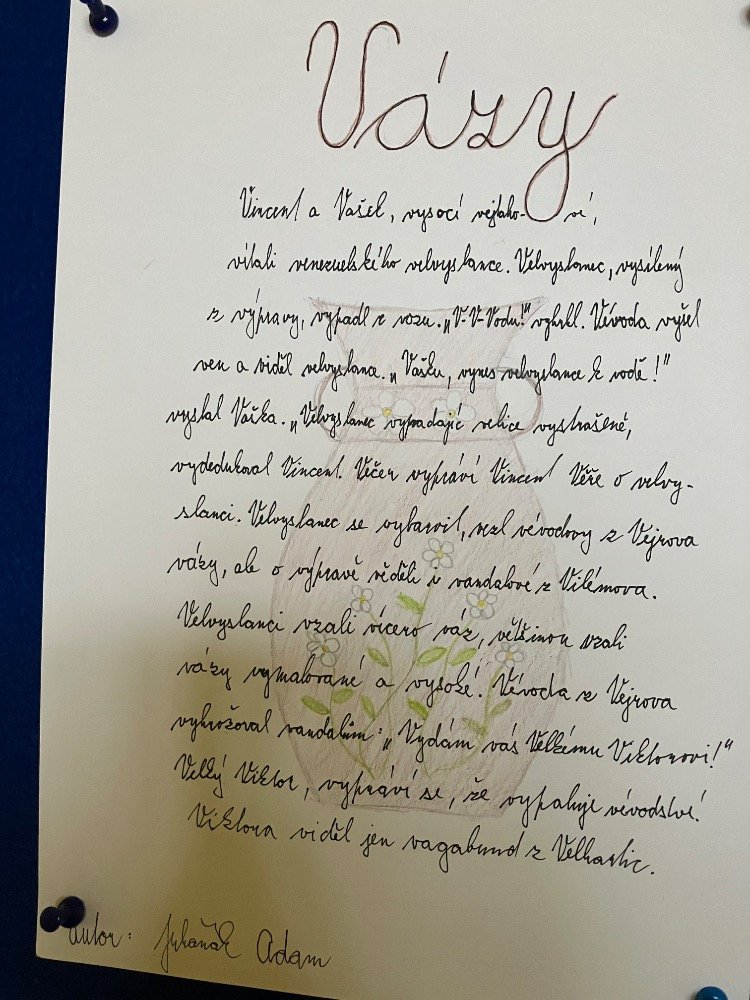 Vázy
Vincent a Vašek, vysocí vejtaho- vé,
vítali venezuelského velvyslance. Velvyslanec, vysílený
z výpravy, vypadl z vozu. „V-V-Vodu!" vyhrkl. Vévoda vyšel
ven a viděl velvyslance. „Vašku, vynes velvyslance k vodě!"
vyslal Vaška. „Velvyslanec vypadající velice vystrašeně,
vydedukoval Vincent. Večer vypráví Vincent Věře o velvy-
slanci. Velvyslanec se vybarvil, vezl vévodovy z Vejrova
vázy, ale o výpravě věděli i vandalové z Vilémova.
Velvyslanci vzali vícero váz, většinou vzali
vázy vymalované a vysoké. Vévoda z Vejrova
vyhrožoval vandalům: „Vydám vás Velkému Viktorovi!"
Velký Viktor, vypráví se, že vypaluje vévodství.
Viktora viděl jen vagabund z Velhartic.
autor: Adam